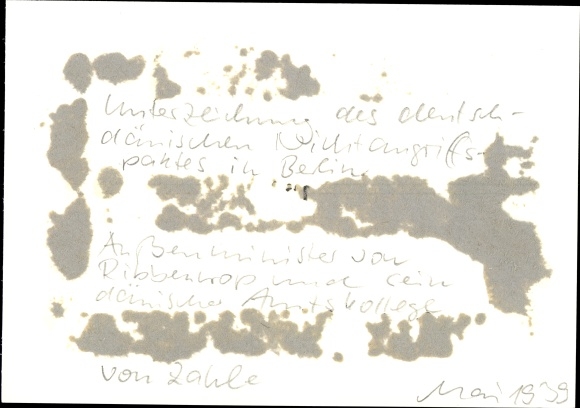 Unterzeichnung des deutsch-
dänischen Nichtangriffs-
paktes in Berlin.
Außenminister von
Ribbentrop und sein
dänischer Amtskollege
von Zahle
Mai 1939